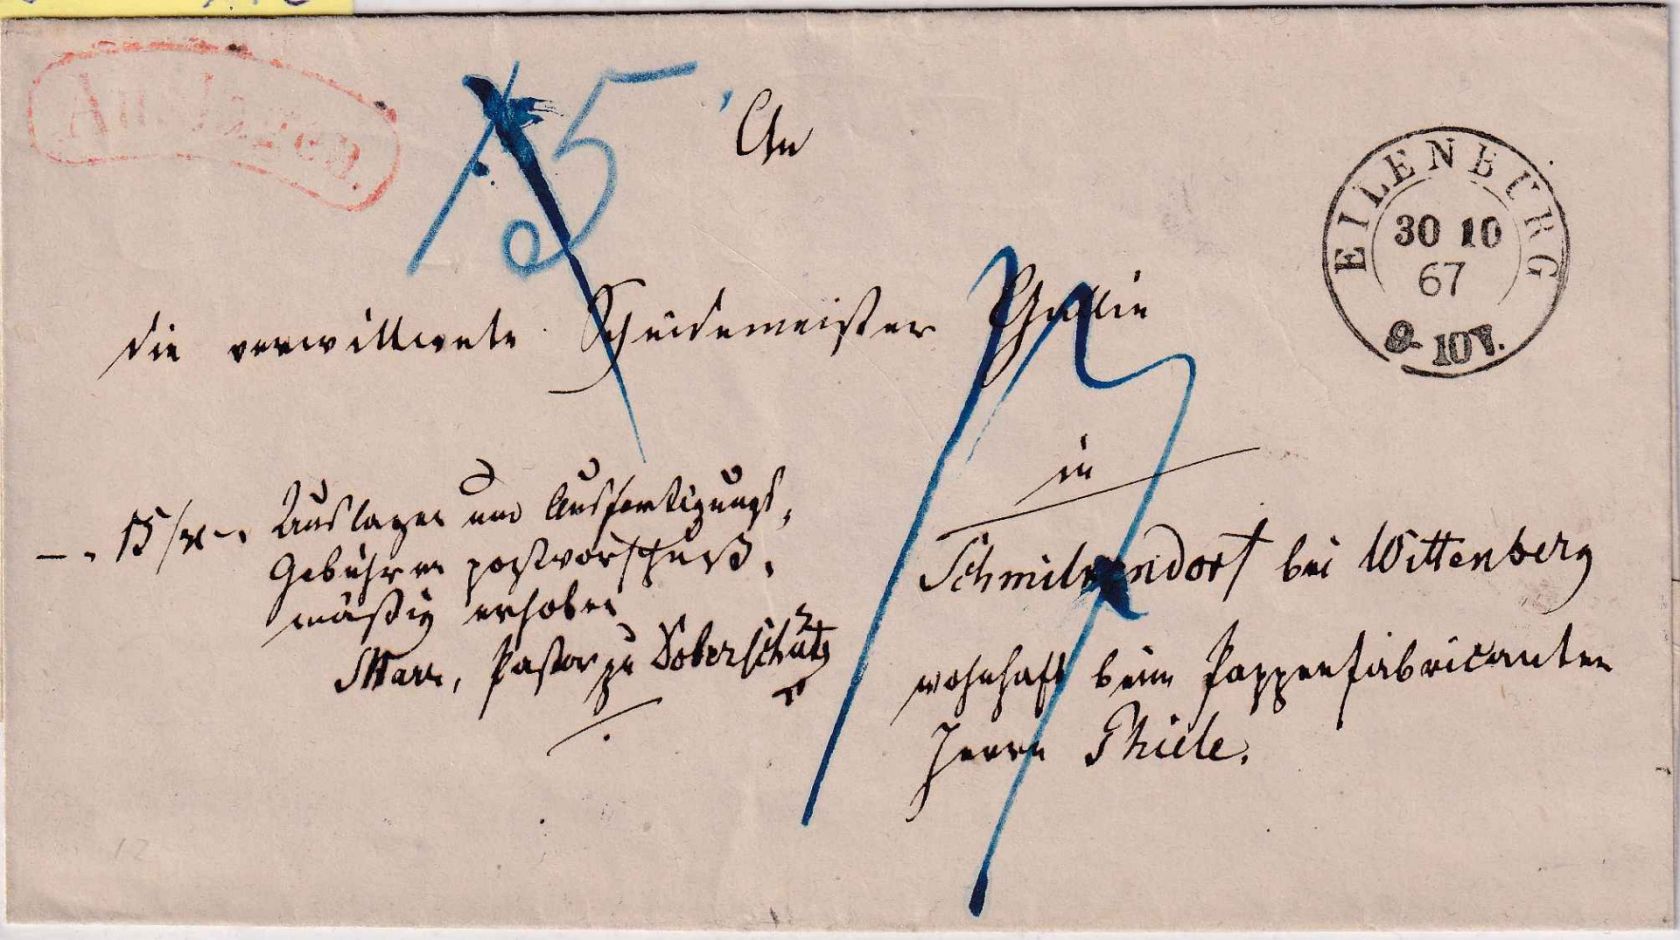 Auslagen.
15
An
EILENBURG
30 10
67
9-10 V.
die verwittwete Scheidemeister Thiele
in
Schmilkendorf bei Wittenberg
wohnhaft beim Pappenfabricanten
Herrn Thiele.
15 Auslagen und Ausfertigungs,
Gebühren postvorschuß,
mäßig erhoben
Marx, Pastor zu Doberschütz
17